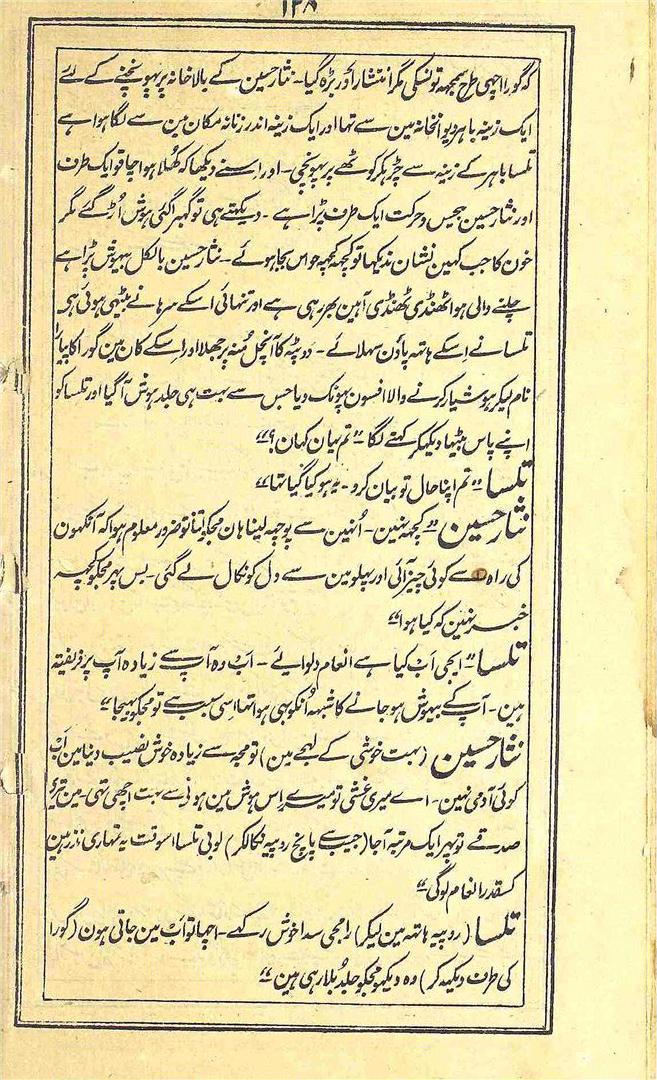 ۱۲۸
کہ گورا اچھی طرح سمجہہ تو سکی مگر انتشار اور بڑہ گیا۔ نثار حسین کے بالا خانہ پر پہونچنے کے لئے
ایک زینہ باہر دیوانخانہ مین سے تہا اور ایک زینہ اندر زنانہ مکان مین سے لگا ہوا ہے
تلسا باہر کے زینہ سے چڑہکر کوٹھے پر پہونچی۔ اور اسنے دیکھا کہ کھُلا ہوا چاقو ایک طرف
اور نثار حسین بیحس و حرکت ایک طرف پڑا ہے۔ دیکہتے ہی تو گھبرا گئی ہوش اُڑ گئے مگر
خون کا جب کہین نشان ندیکہا تو کچہہ کچہہ حواس بجا ہوئے۔ نثار حسین بالکل بیہوش پڑا ہے
چلنے والی ہوا ٹھنڈی ٹھنڈی آہین بھر رہی ہے اور تنہائی اسکے سرہانے بیٹھی ہوئی ہی
تلسا نے اسکے ہاتہہ پاؤن سہلائے۔ دوپٹہ کا آنچل مُنہ پر جھلا اور اسکے کان مین گورا کا پیارا
نام لیکر ہوشیار کرنے والا افسون پہونک دیا جس سے بہت ہی جلد ہوش آ گیا اور تلسا کو
اپنے پاس بیٹھا دیکھکر کہنے لگا۔ ”تم یہان کہان؟“
تلسا ”تم اپنا حال تو بیان کرو۔ یہ ہو کیا گیا تھا“
نثار حسین ”کچہہ نہین۔ اُنہین سے پوچہہ لینا ہان مجکو اتنا تو ضرور معلوم ہوا کہ آنکھون
کی راہ سے کوئی چیز آئی اور پہلو مین سے دل کو نکال لے گئی۔ بس پہر مجکو کچہہ
خبر نہین کہ کیا ہوا“
تلسا ”اجی اَب کیا ہے انعام دلوائے۔ اب وہ آپ سے زیادہ آپ پر فریفتہ
ہین۔ آپ کے بیہوش ہو جانے کا شبہہ اُنکو بھی ہوا تھا اسی سبب سے تو مجکو بھیجا“
نثار حسین (بہت خوشی کے لہجے مین) تو مجہہ سے زیادہ خوش نصیب دنیا مین اَب
کوئی آدمی نہین۔ اے میری غشی تو میرے اِس ہوش مین ہونے سے بہت اچھی تھی۔ مین تیرے
صدقے تو پہر ایک مرتبہ آ جا (جیب سے پانچ روپیہ نکالکر) لو بی تلسا اسوقت یہ تمہاری نذر ہین
کسقدر انعام لو گی“
تلسا (روپیہ ہاتہہ مین لیکر) رامجی سدا خوش رکہے۔ اچھا تو اَب مین جاتی ہون (گورا
کی طرف دیکھہ کر) وہ دیکھو مجکو جلد بُلا رہی ہین“